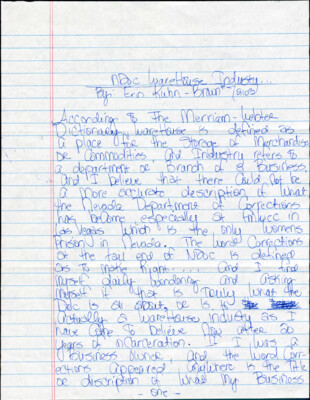 NDoc Warehouse Industry...
By: Erin Kuhn-Brown (2103)
According to The Merriam-Webster
Dictionary, warehouse is defined as
a place for the Storage of Merchandise
or Commodities, and Industry refers to
a department or branch of a Business.
And I believe that there could not be
a more accurate description of what
the Nevada Department of Corrections
has become, especially at fmwcc in
Las Vegas which is the only womens
Prison in Nevada. The word Corrections
at the tail end of NDoc is defined
as to make Right.... and I find
myself daily wondering and asking
myself if that is Truly what the
Doc is all about, or is it
actually a warehouse industry as I
have come to Believe now after 20
years of incarceration. If I was a
Business owner, and the word Corr-
ections appeared anywhere in the title
or description of what my Business
- one -